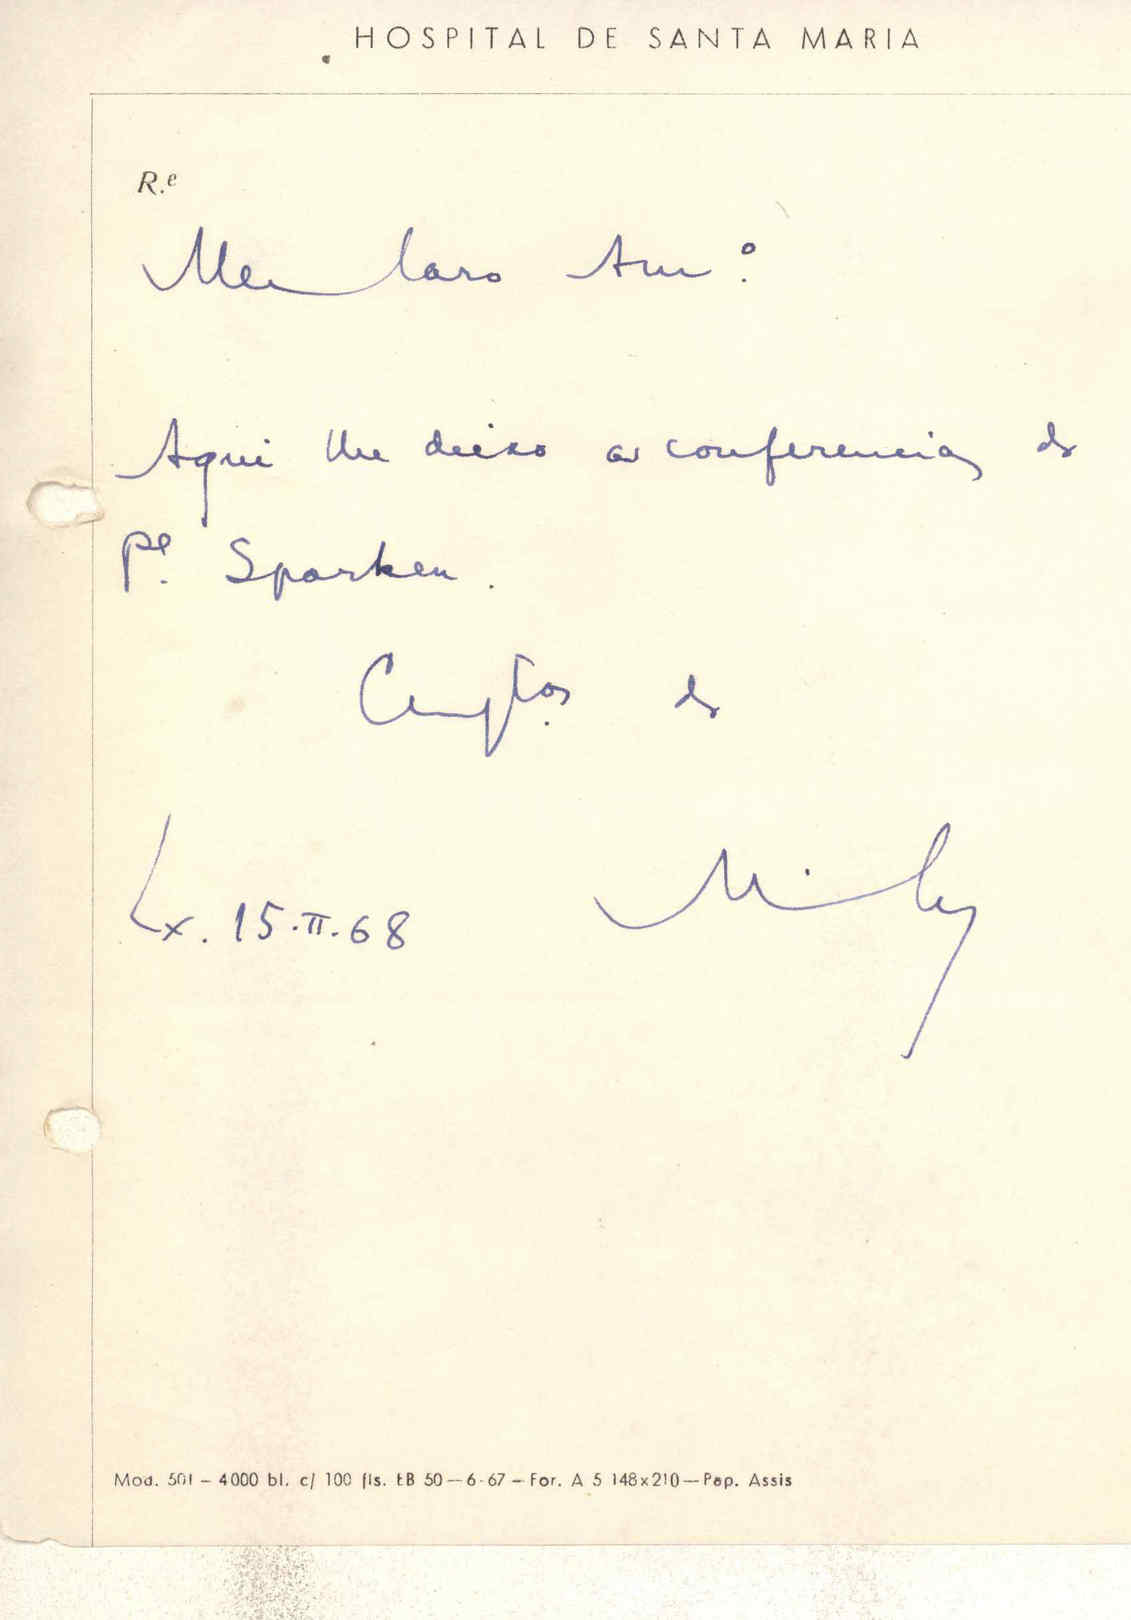 HOSPITAL DE SANTA MARIA
R.e
Meu Caro Am.º
Aqui lhe deixo as conferencias do
Pe. Sparken.
Cumptos. do
Lx. 15.II.68
Mod. 501 – 4000 bl. c/ 100 fls. EB 50 — 6-67 – For. A 5 148x210 — Pap. Assis